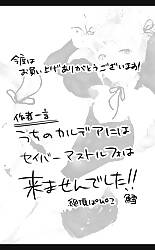 今度は
お買い上げありがとうございます!
作者一言
うちのカルデアには
セイバーアストルフォは
来ませんでした!!
鱈